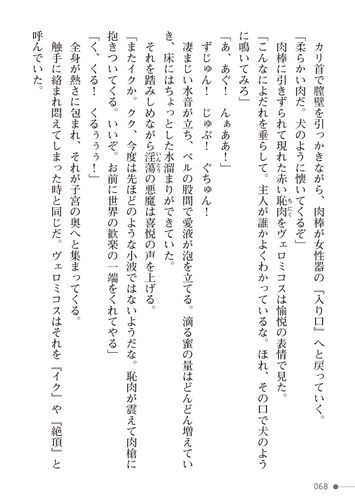 カリ首で膣壁を引っかきながら、肉棒が女性器の『入り口』へと戻っていく。
「柔らかい肉だ。犬のように懐いてくるぞ」
　肉棒に引きずられて現れた赤い恥肉をヴェロミコスは愉悦の表情で見た。
「こんなによだれを垂らして。主人が誰かよくわかっているな。ほれ、その口で犬のよう
に鳴いてみろ」
「あ、あぐ！　んぁああ！」
　ずじゅん！　じゅぶ！　ぐちゅん！
　凄まじい水音が立ち、ベルの股間で愛液が泡を立てる。滴る蜜の量はどんどん増えてい
き、床にはちょっとした水溜まりができていた。
　それを踏みしめながら淫蕩の悪魔は喜悦の声を上げる。
「またイクか。クク、今度は先ほどのような小波ではないようだな。恥肉が震えて肉槍に
抱きついてくる。いいぞ。お前に世界の歓楽の一端をくれてやる」
「く、くる！　くるぅぅぅ！」
　全身が熱さに包まれ、それが子宮の奥へと集まってくる。
　触手に絡まれ悶えてしまった時と同じだ。ヴェロミコスはそれを『イク』や『絶頂』と
呼んでいた。
068